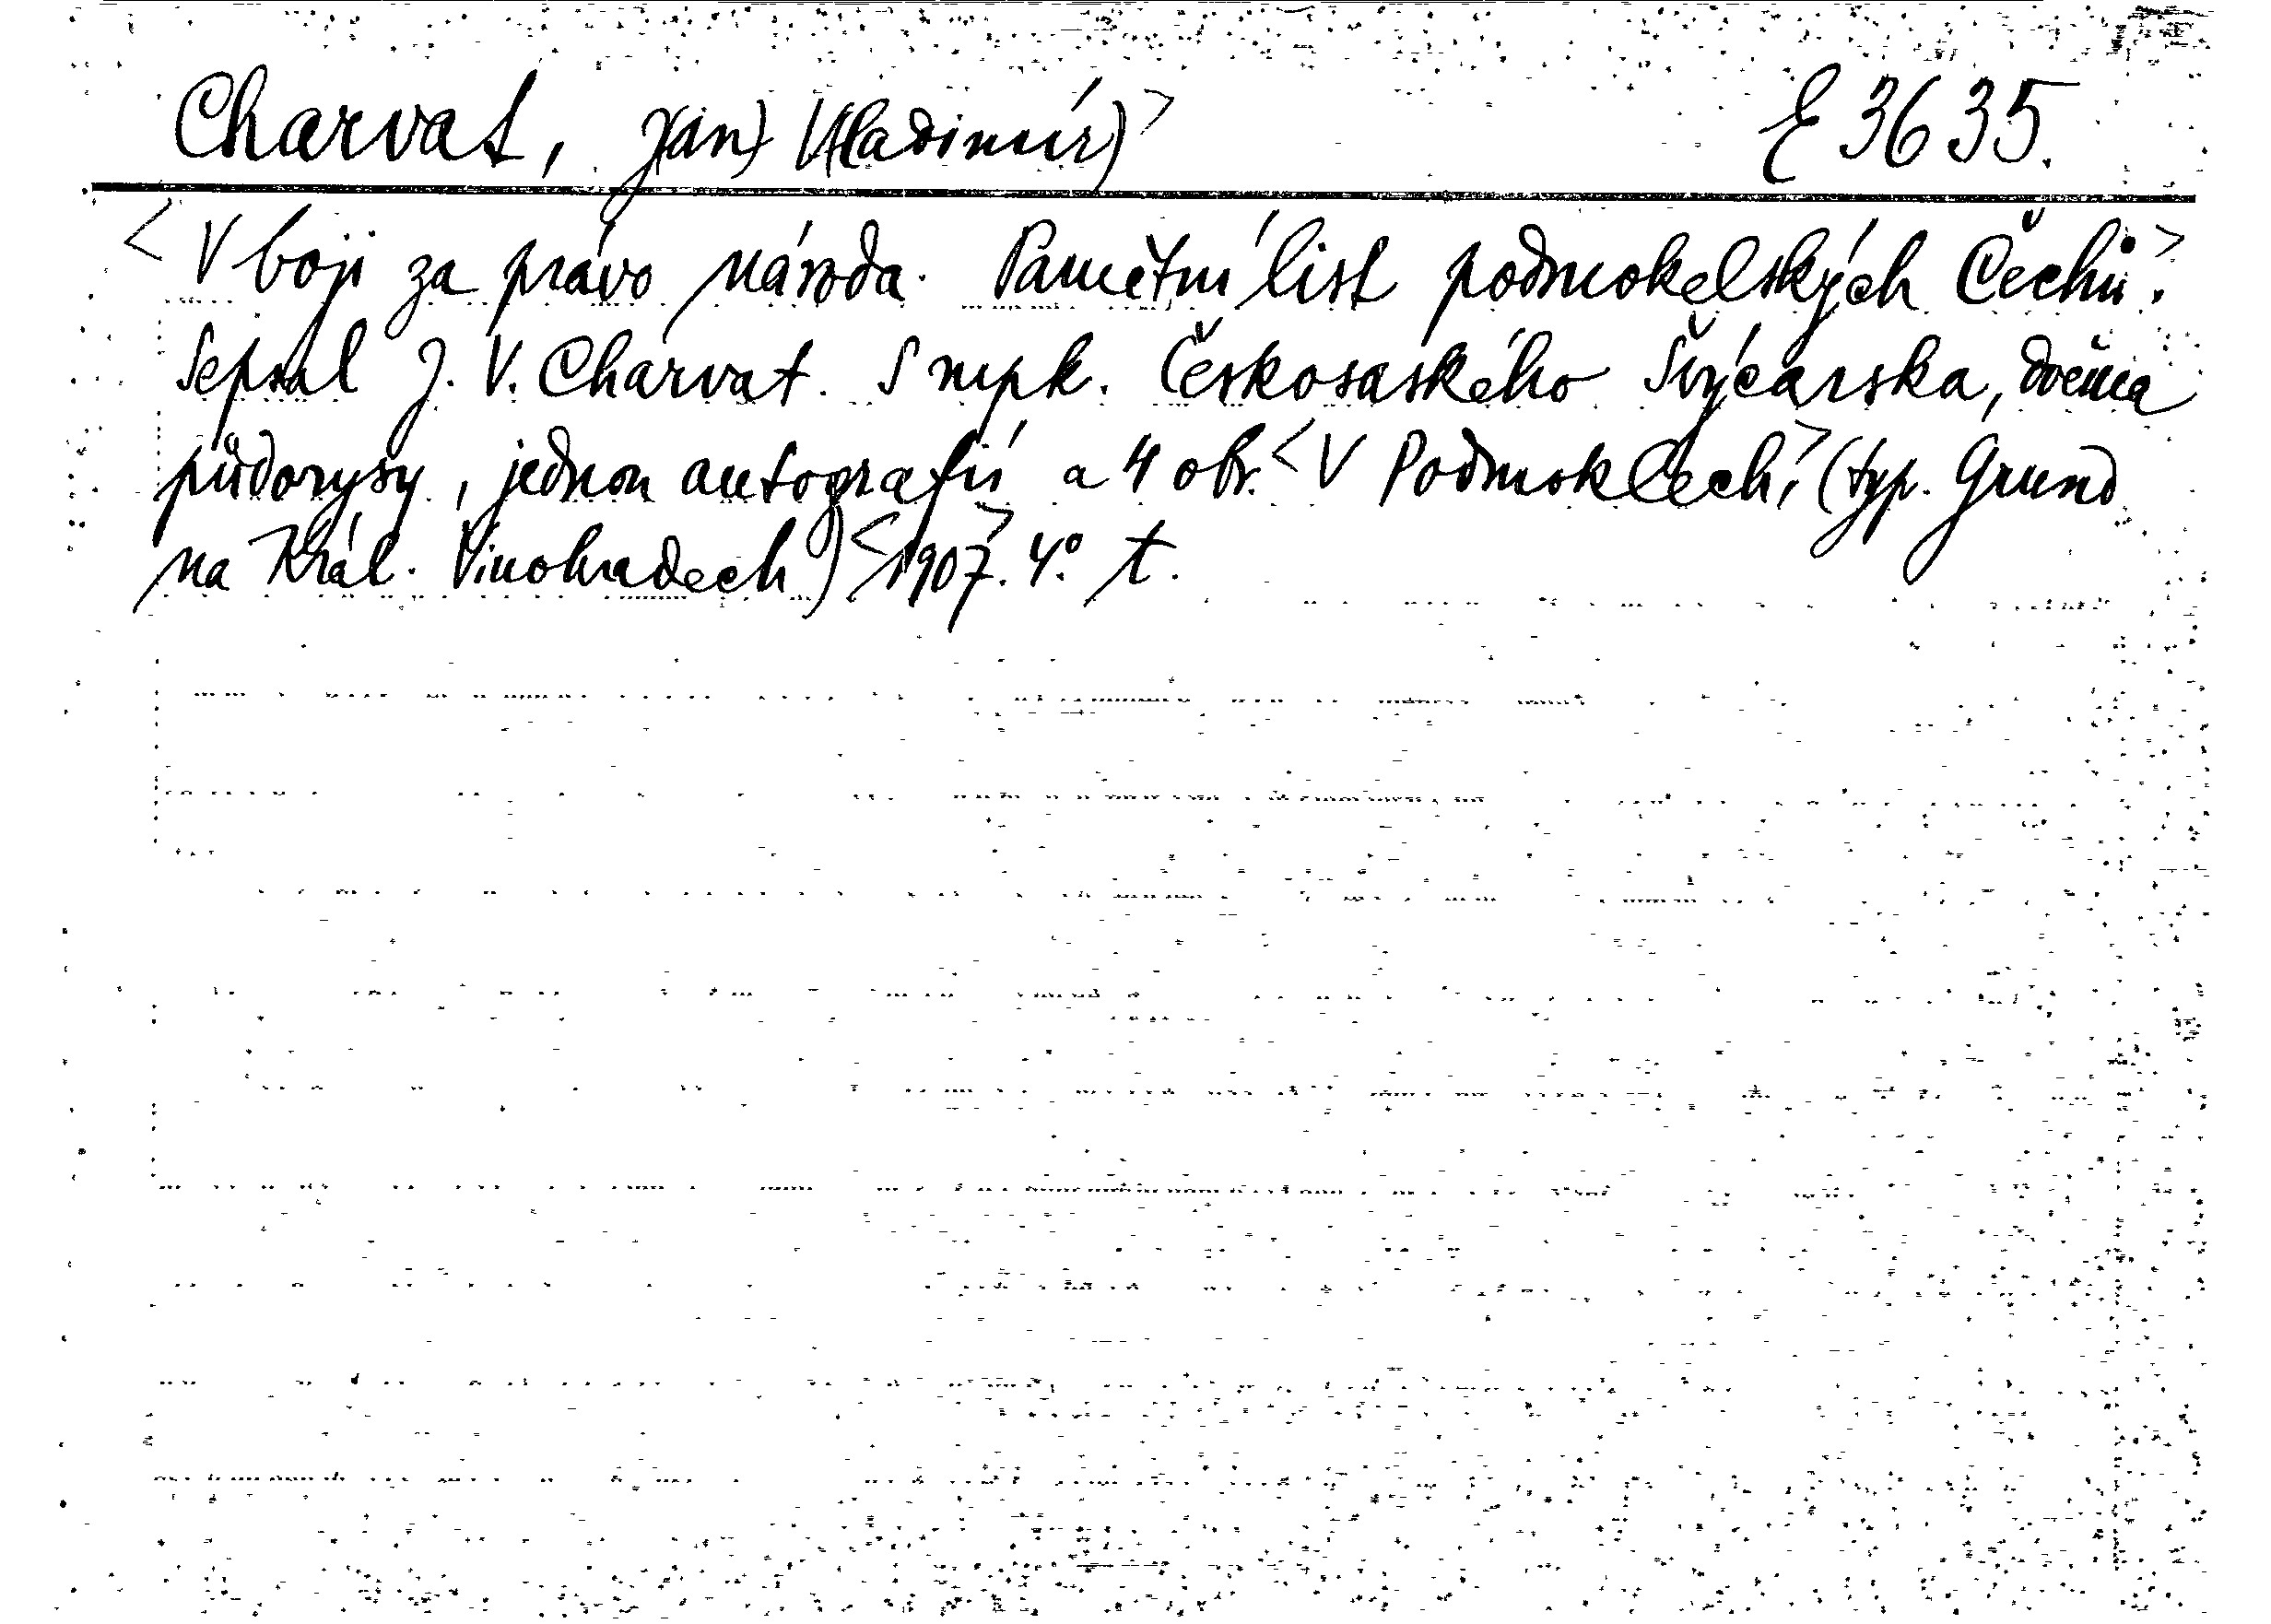 Charvat, J(an) V(ladimír)> E 3635.
<V boji za právo národa. Pamětní list podmokelských Čechů>.
Sepsal J. V. Charvat. S mpk. Českosaského Švýcarska, dvěma
půdorysy, jednou autografií a 4 obr. <V Podmoklech>, (typ. Grund
na Král. Vinohradech) <1907>. 4° t.